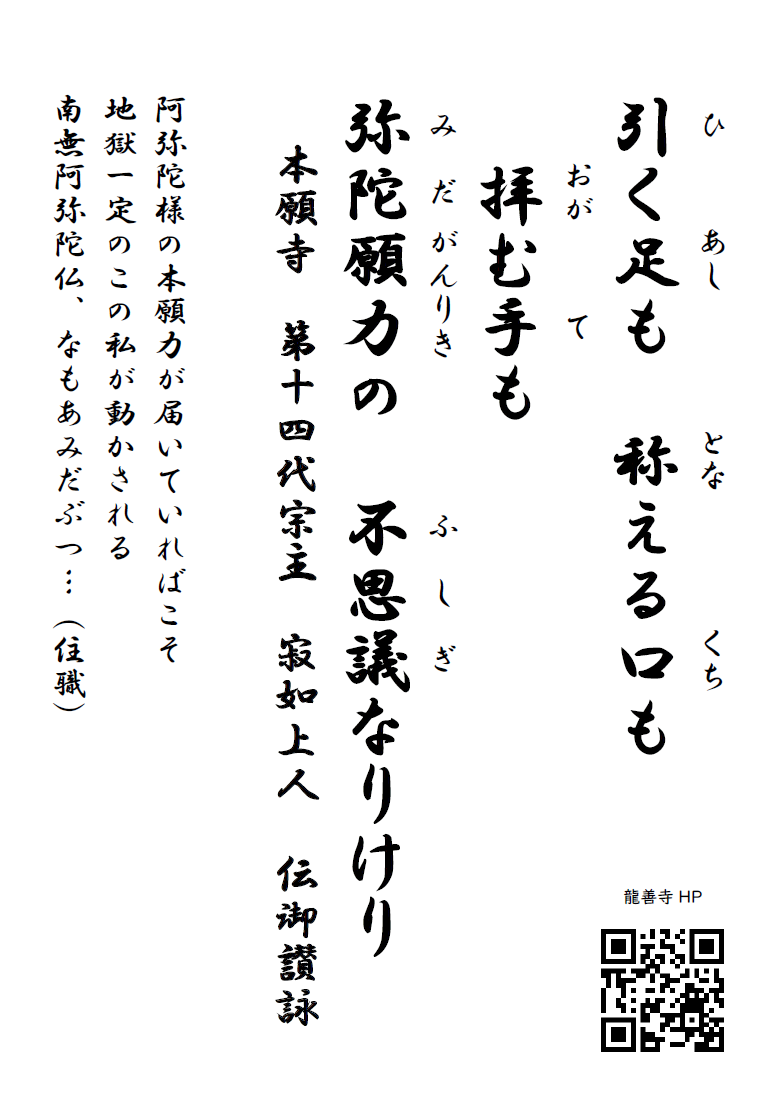 引く足も　称える口も
ひ　あし　とな　くち
拝む手も
おが　て
弥陀願力の　不思議なりけり
み　だ　がんりき　ふ　し　ぎ
本願寺　第十四代宗主　寂如上人　伝御讃詠
阿弥陀様の本願力が届いていればこそ
地獄一定のこの私が動かされる
南無阿弥陀仏、なもあみだぶつ…（住職）
龍善寺 HP